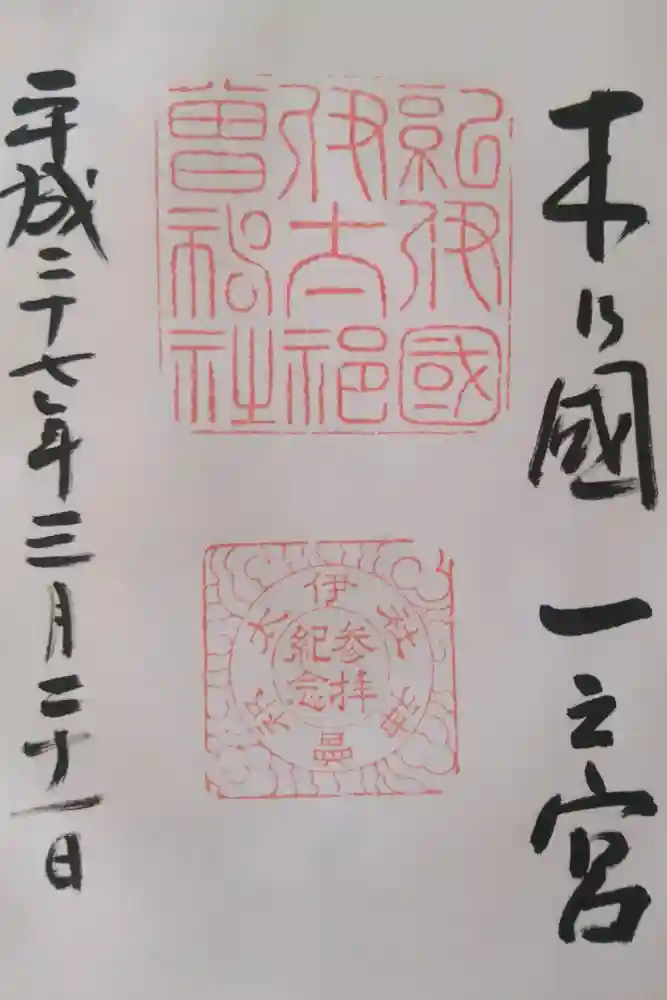 木乃國一之宮
紀伊國
伊太祁
曾神社
伊太祁曾神社
参拝
紀念
平成二十七年三月二十一日